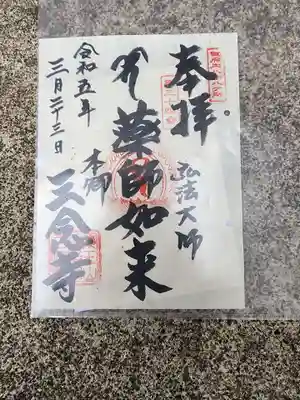 奉拝
弘法大師
薬師如来
本郷
三念寺
令和五年
三月二十三日